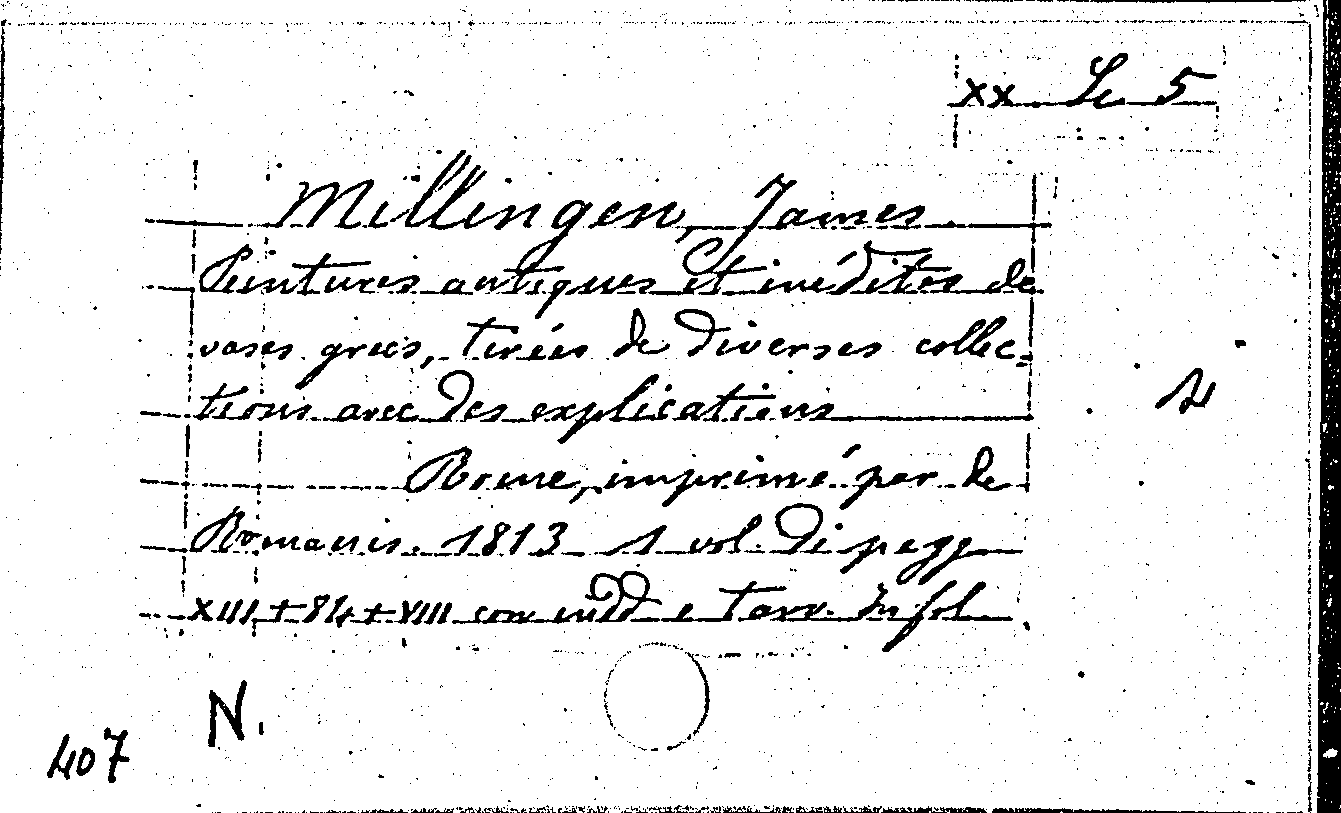 xx Sc 5
Millingen, James
Peintures antiques et inédites de
vases grecs, tirées de diverses collec=
tions avec des explications
Rome, imprimé par de
Romanis. 1813 1 vol. di pagg
XIII + 84 + VIII con indd e tavv. In fol.
N.
407